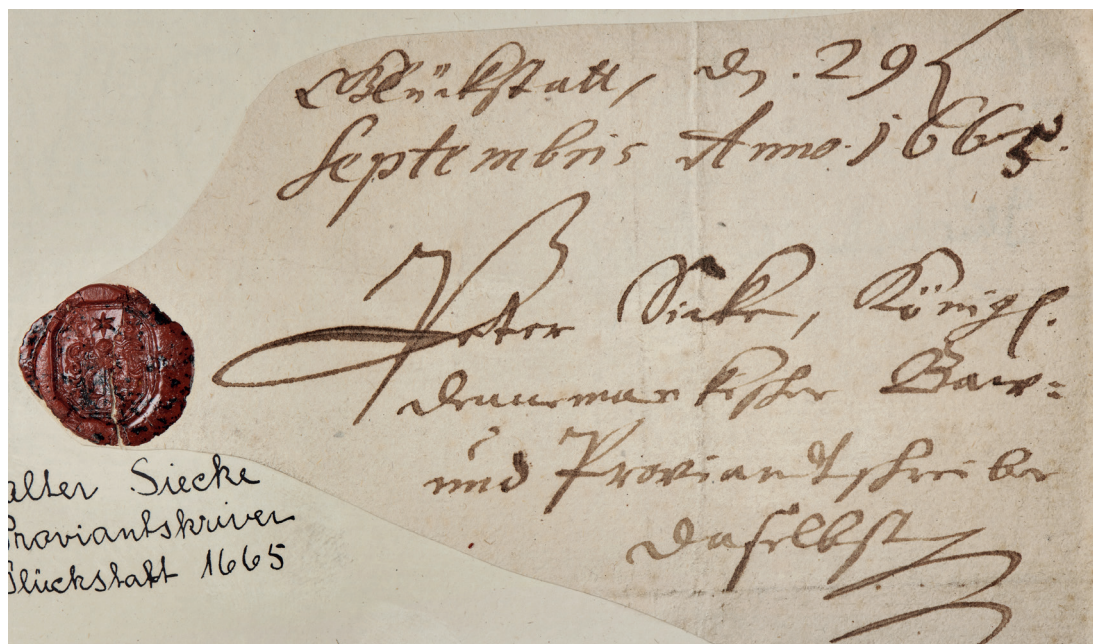 Glückstatt, den . 29
Septembris Anno. 1665.
Peter Sieke, Königl.
dennemarkescher Baw=
und Proviandtschreiber
daselbst
alter Siecke
Proviantskriver
Glückstatt 1665